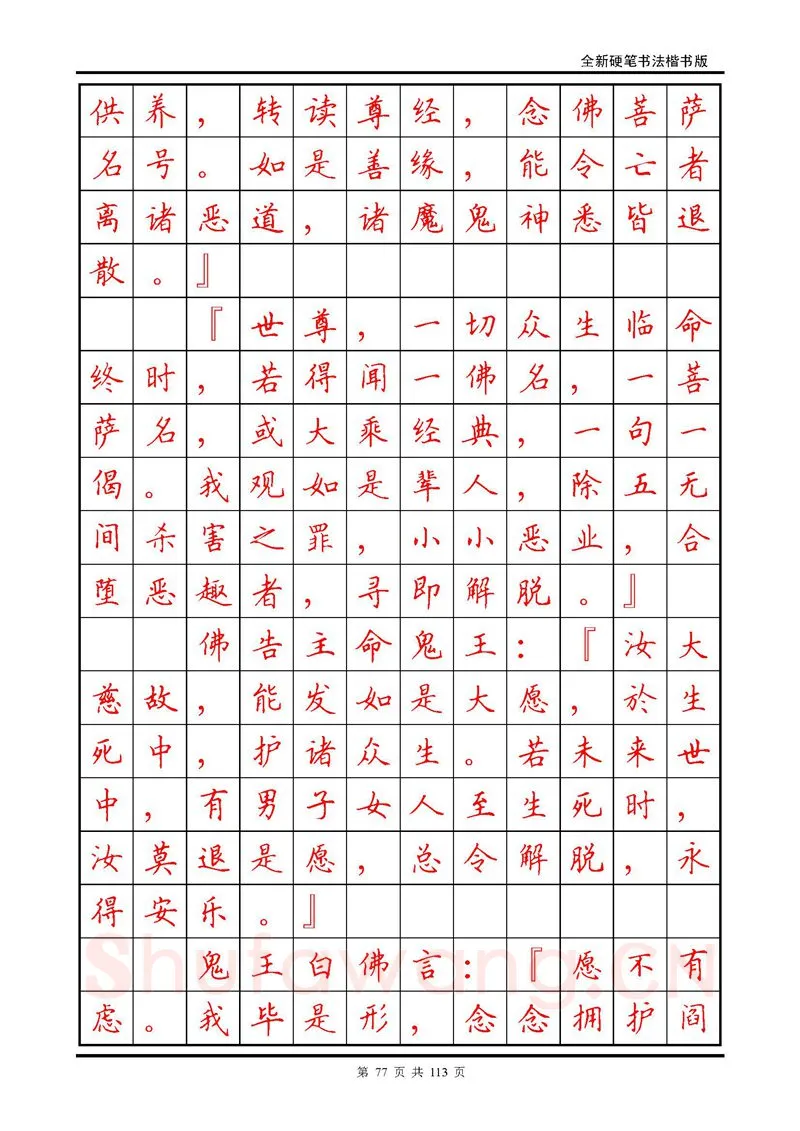 全新硬笔书法楷书版
供养，转读尊经，念佛菩萨
名号。如是善缘，能令亡者
离诸恶道，诸魔鬼神悉皆退
散。』
『世尊，一切众生临命
终时，若得闻一佛名，一菩
萨名，或大乘经典，一句一
偈。我观如是辈人，除五无
间杀害之罪，小小恶业，合
堕恶趣者，寻即解脱。』
佛告主命鬼王：『汝大
慈故，能发如是大愿，於生
死中，护诸众生。若未来世
中，有男子女人至生死时，
汝莫退是愿，总令解脱，永
得安乐。』
鬼王白佛言：『愿不有
虑。我毕是形，念念拥护阎
Shufawang.CN
第 77 页 共 113 页